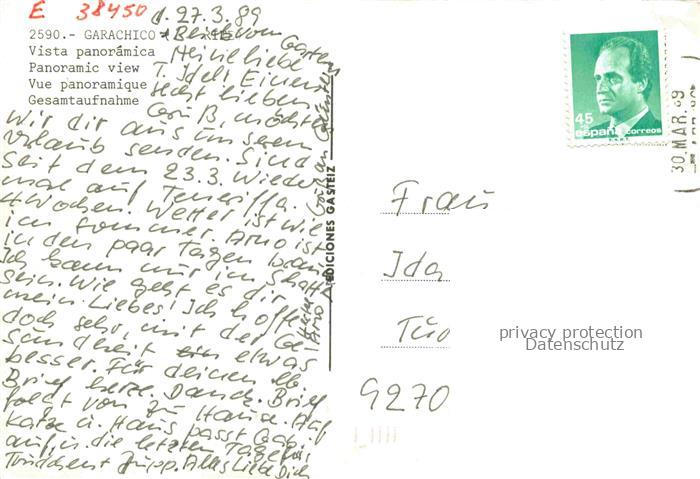 E 38450
d. 27.3.89
2590.- GARACHICO
Vista panorámica
Panoramic view
Vue panoramique
Gesamtaufnahme
Blick vom Garten
Meine liebe
T. Ida! Einen
recht lieben
Gruß, möchten
wir dir aus unserem
Urlaub senden. Sind
seit dem 23.3. wieder
mal auf Teneriffa.
4 Wochen. Wetter ist wie
im Sommer. Arno ist
in den paar Tagen braun
Ich kann nur im Schatten
sein. Wie geht es dir
mein Liebes! Ich hoffe
doch sehr, mit der Ge-
sundheit ein etwas
besser. Für deinen lb.
Brief herzl. Dank. Brief
folgt von zu Hause. Auf
Katze u. Haus passt Gabi
auf, u. die letzten Tage für
Jupp. Alles Liebe Dich
Arno
EDICIONES GASTEIZ
45
españa correos
30 MAR. 89
Frau
Ida
9270
privacy protection
Datenschutz